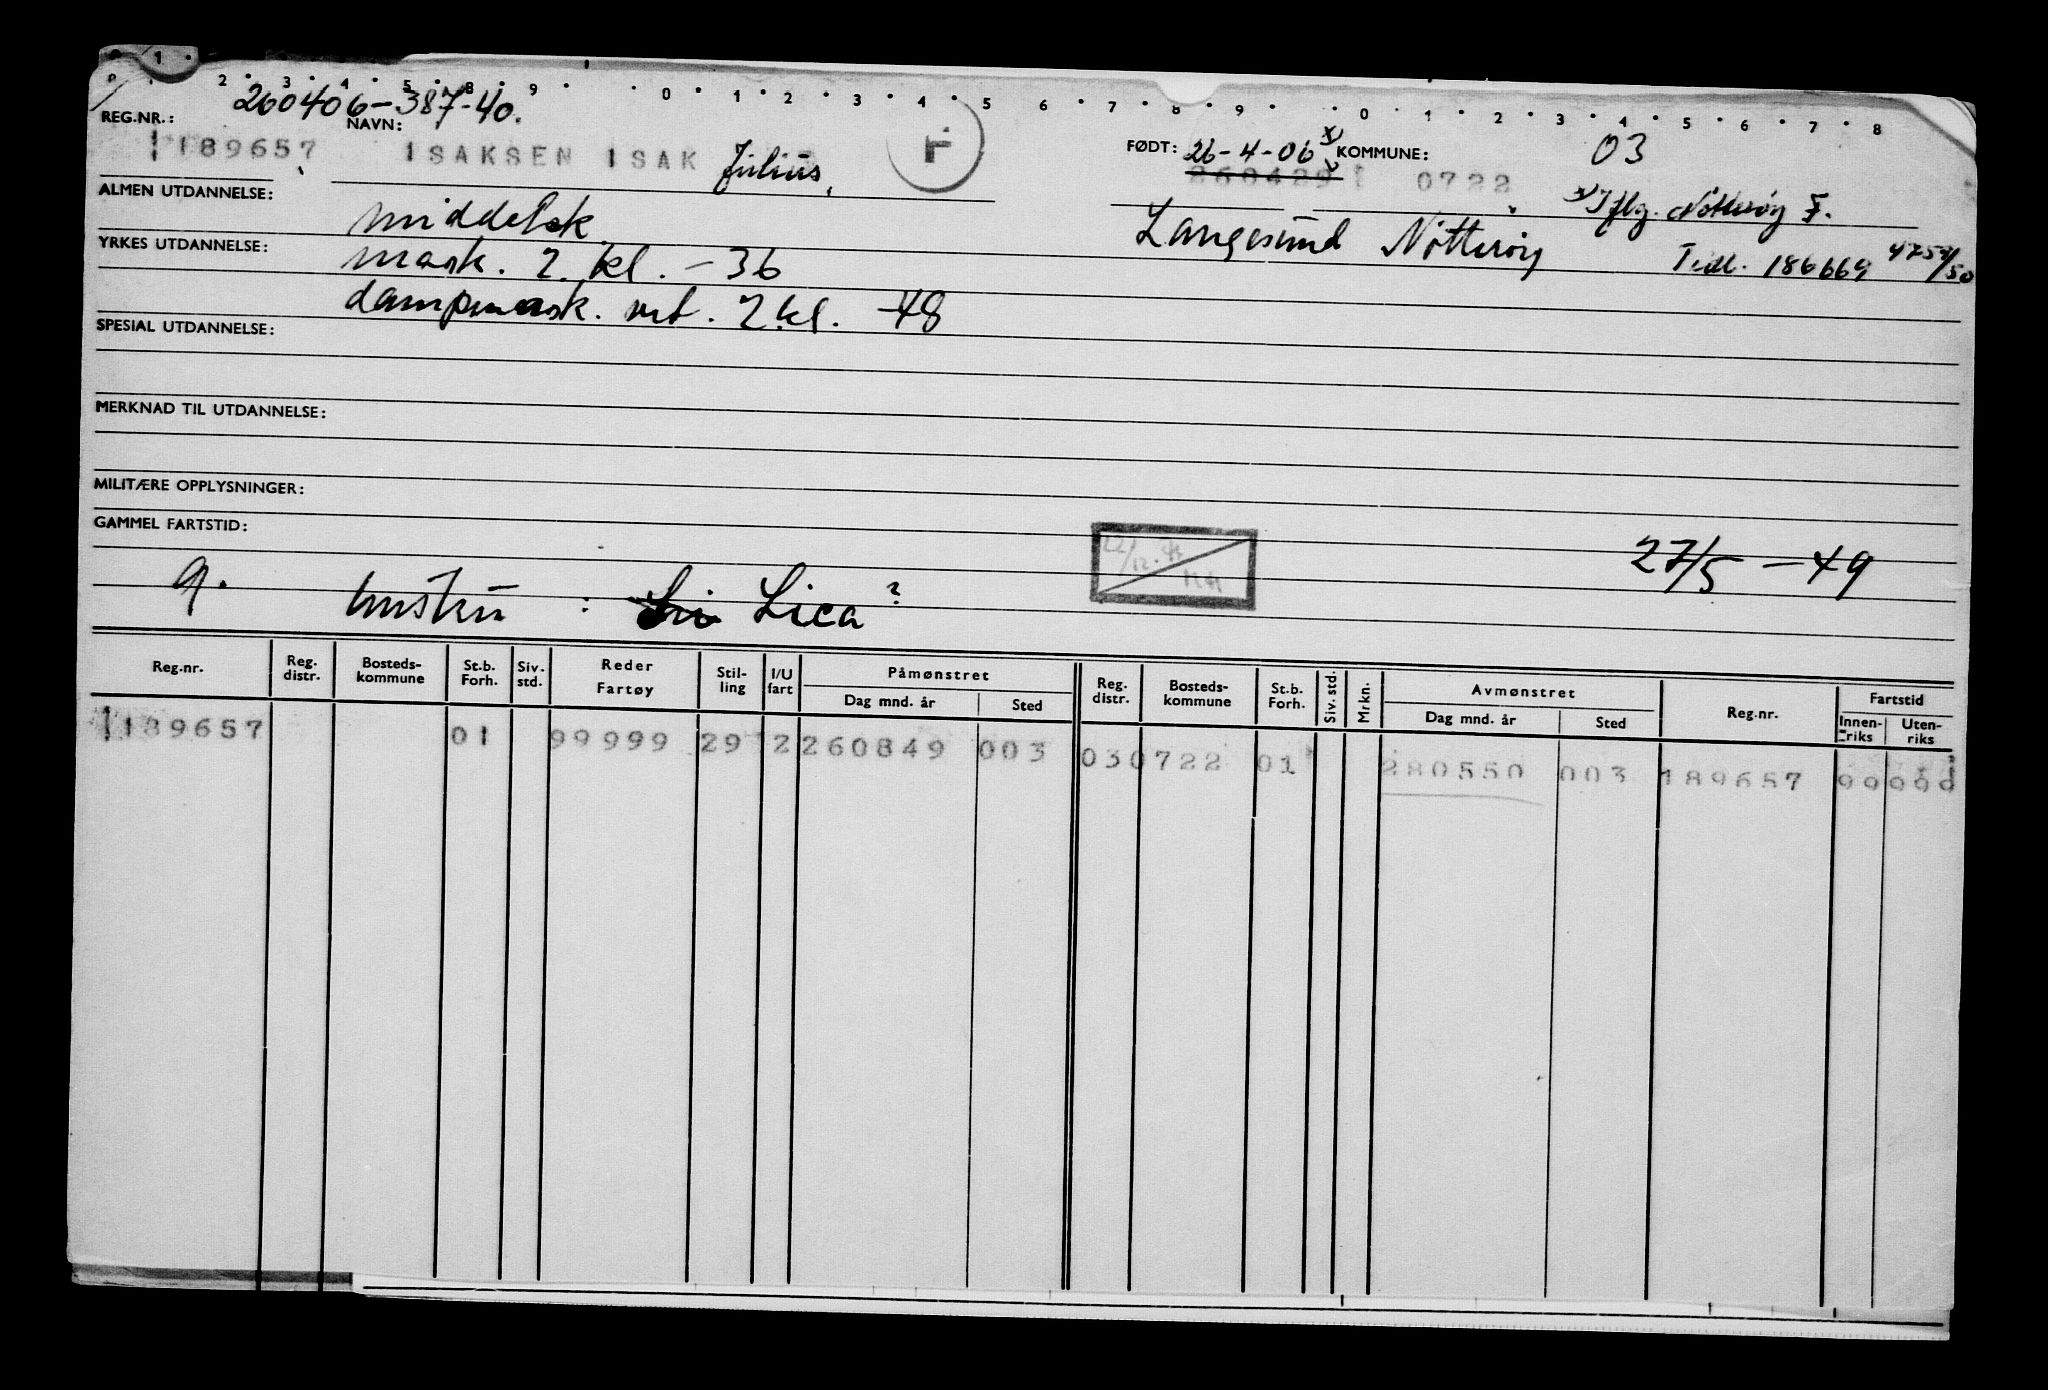 0 1
2 3 4 5 8 9 0 1 2 3 4 5 6 7 8 9 0 1 2 3 4 5 6 7 8
260406-387-40.
REG.NR.: NAVN: FØDT: 26-4-06 x) KOMMUNE: 03
189657 ISAKSEN ISAK Julius, F 260429 0722
x) Iflg. Nøtterøy F.
ALMEN UTDANNELSE: middelsk. Langesund Nøtterøy
Tidl. 186669
YRKES UTDANNELSE: mask. 2. kl. - 36
dampmask. 2 kl. -48
SPESIAL UTDANNELSE:
MERKNAD TIL UTDANNELSE:
MILITÆRE OPPLYSNINGER:
GAMMEL FARTSTID:
27/5 - 49
g. hustru : Lica?
Reg.nr. Reg. distr. Bosteds-kommune St.b. Forh. Siv. std. Reder Fartøy Stil-ling I/U fart Påmønstret Dag mnd. år Sted Reg. distr. Bosteds-kommune St.b. Forh. Siv. std. Mrkn. Avmønstret Dag mnd. år Sted Reg.nr. Fartstid Innen-riks Uten-riks
189657 01 99999 29 2 260849 003 03 0722 01 280550 003 189657